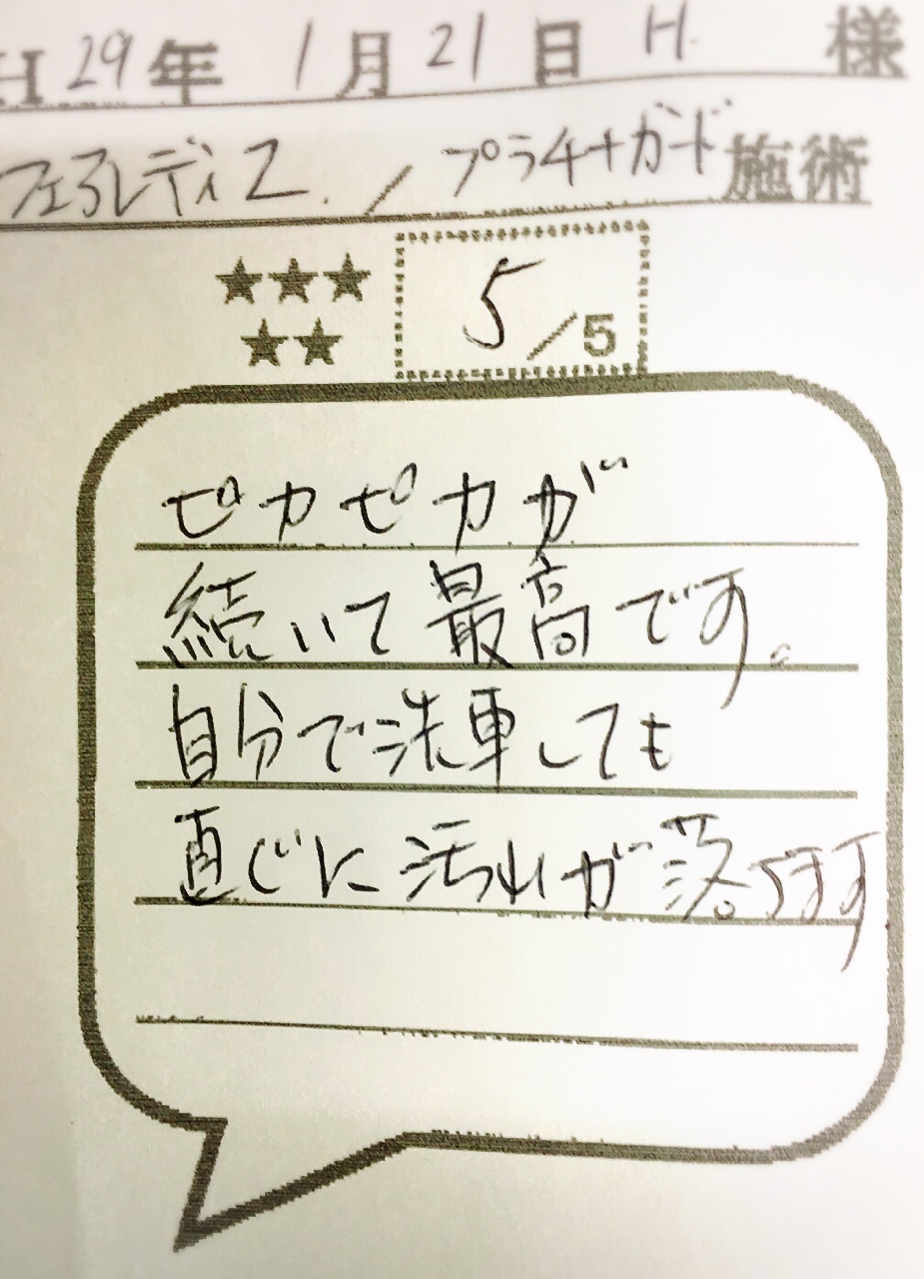 H29年1月21日 H 様
フェアレディZ. / プラチナガード施術
★★★
★★
5/5
ピカピカが
続いて最高です。
自分で洗車しても
直ぐに汚れが落ちます